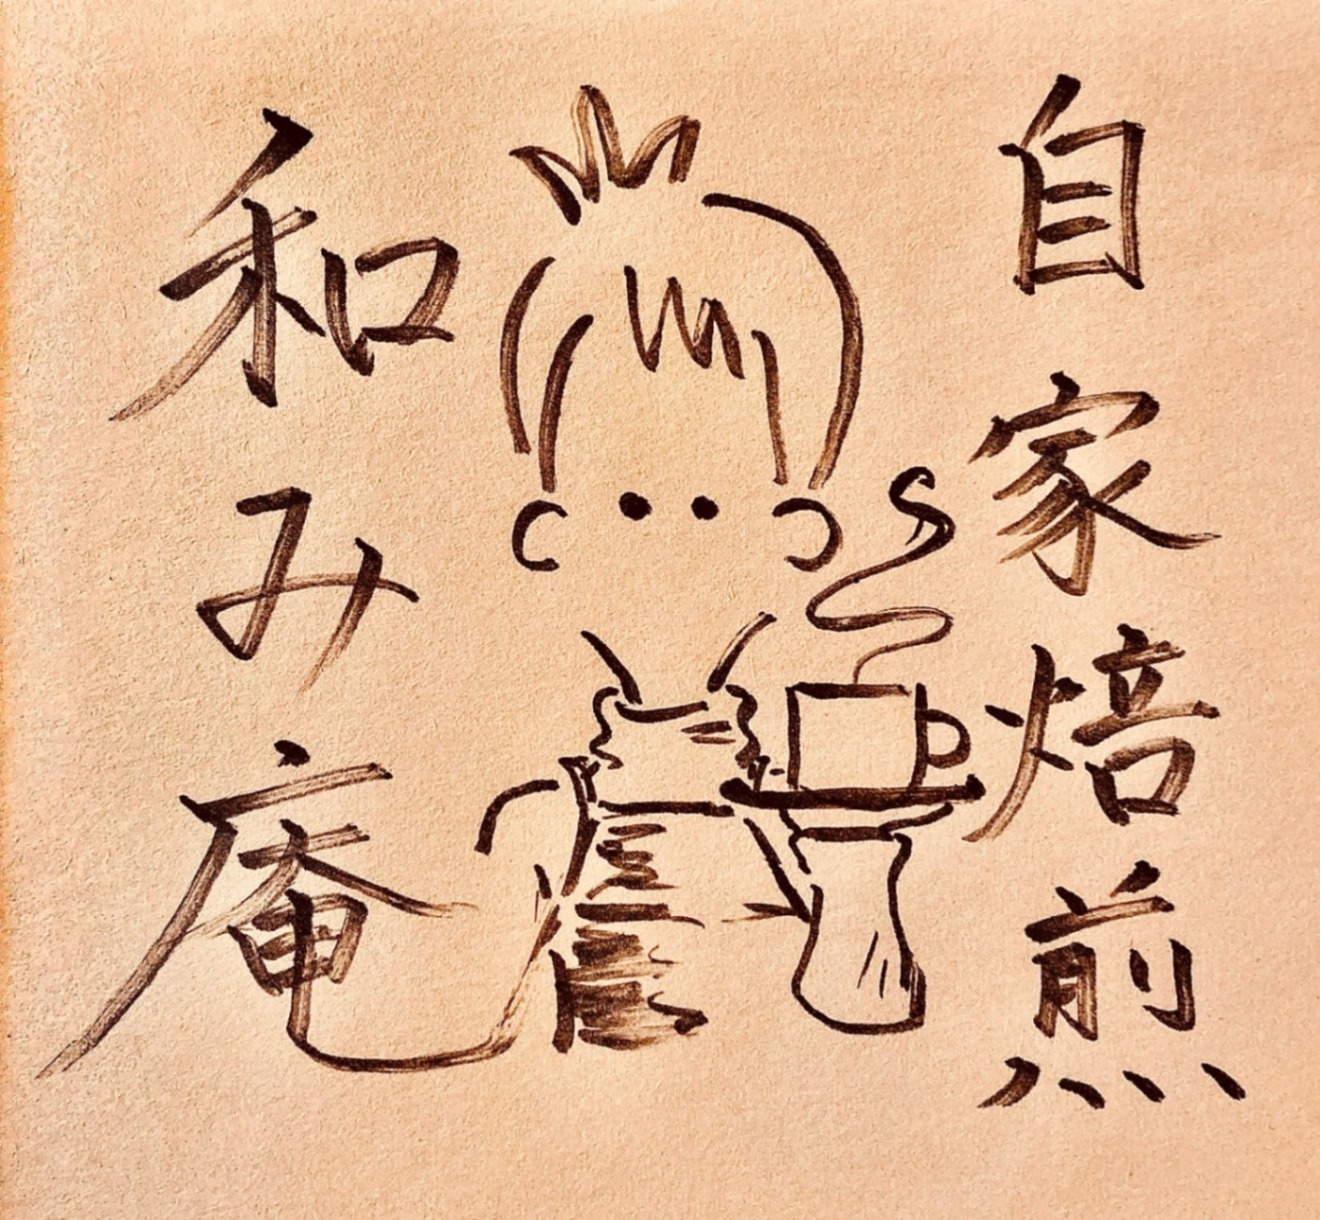 自家焙煎
和み庵